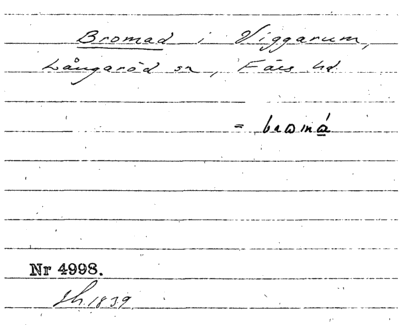 Bromad i Viggarum,
Långaröd sn, Färs hd
= bromá
Nr 4998.
sh 1839